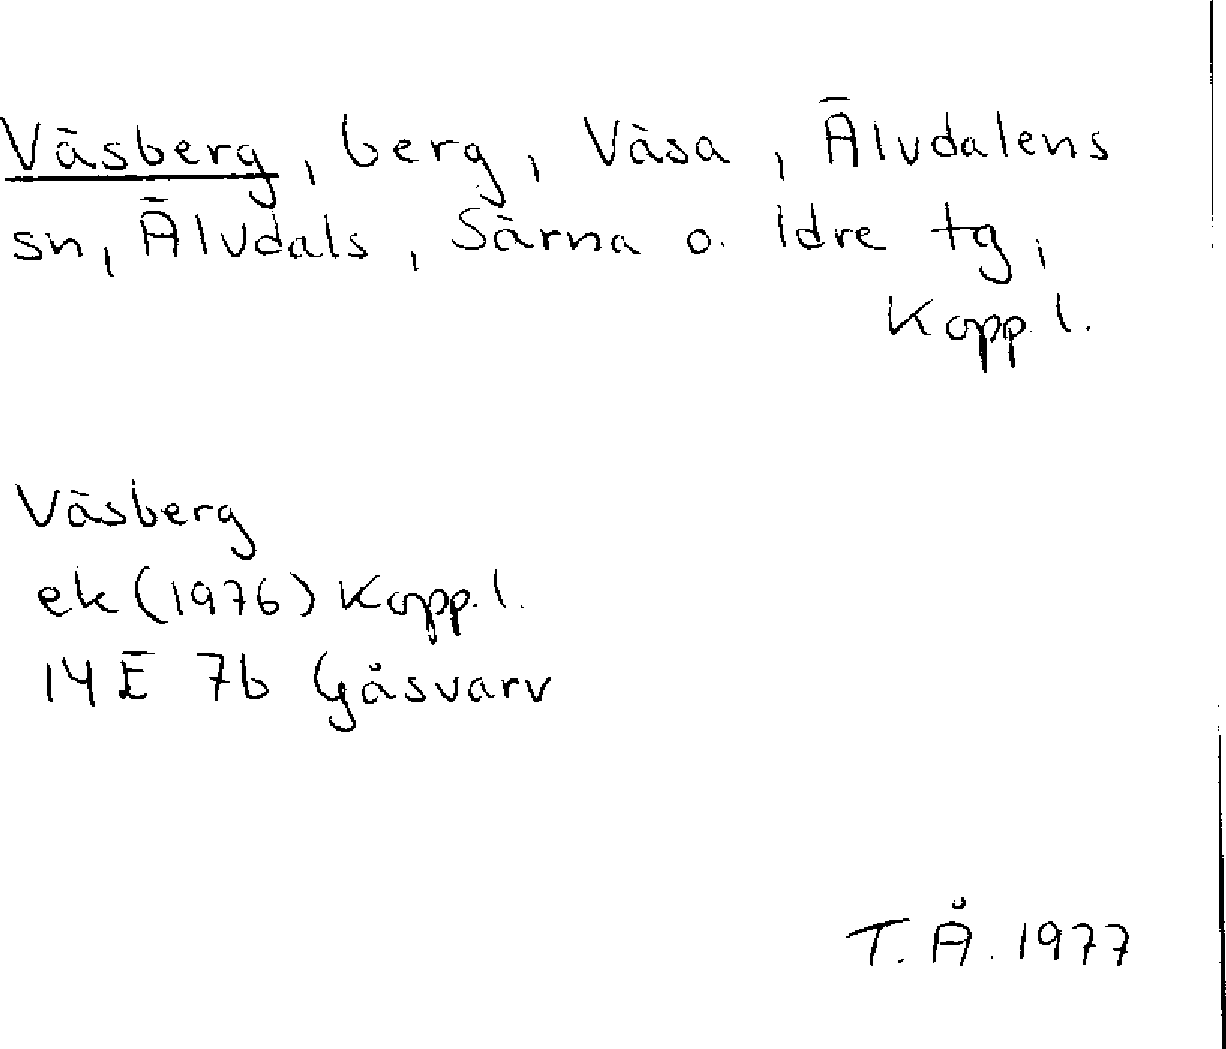 Väsberg, berg, Väsa, Älvdalens
sn, Älvdals, Särna o. Idre tg,
Kopp. l.
Väsberg
ek (1976) Kopp. l.
14E 7b Gåsvarv
T. Å. 1977